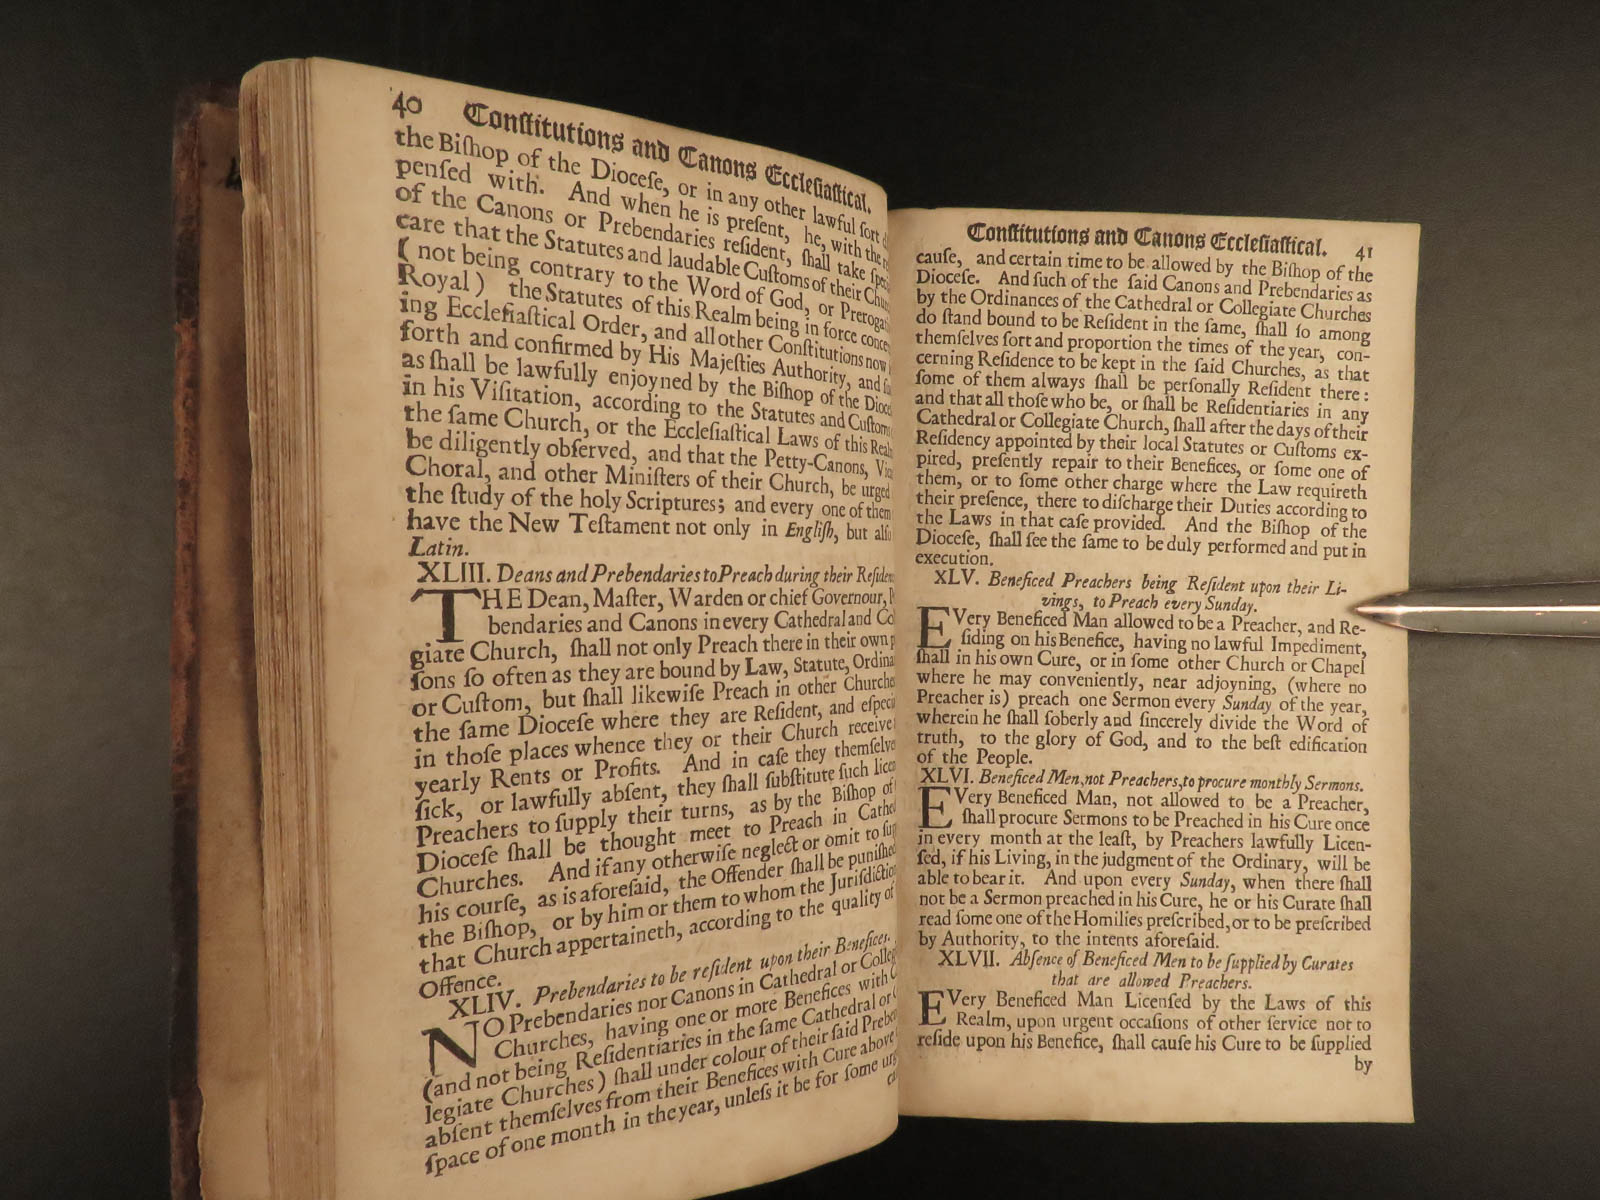 40 Conſtitutions and Canons Eccleſiaſtical.
the Biſhop of the Dioceſe, or in any other lawful ſort
penſed with. And when he is preſent, he, with the
of the Canons or Prebendaries reſident, ſhall take
care that the Statutes and laudable Cuſtoms of their
( not being contrary to the Word of God, or
Royal ) the Statutes of this Realm being in force
ing Eccleſiaſtical Order, and all other Conſtitutions now
forth and confirmed by His Majeſties Authority, and
as ſhall be lawfully enjoyned by the Biſhop of the
in his Viſitation, according to the Statutes and
the ſame Church, or the Eccleſiaſtical Laws of this
be diligently obſerved, and that the Petty-Canons,
Choral, and other Miniſters of their Church, be urged
the ſtudy of the holy Scriptures; and every one of them
have the New Teſtament not only in Engliſh, but
Latin.
XLIII. Deans and Prebendaries to Preach during their
THE Dean, Maſter, Warden or chief Governour,
bendaries and Canons in every Cathedral and
giate Church, ſhall not only Preach there in their own
ſons ſo often as they are bound by Law, Statute,
or Cuſtom, but ſhall likewiſe Preach in other
the ſame Dioceſe where they are Reſident, and
in thoſe places whence they or their Church receive
yearly Rents or Profits. And in caſe they
ſick, or lawfully abſent, they ſhall ſubſtitute ſuch
Preachers to ſupply their turns, as by the Biſhop of
Dioceſe ſhall be thought meet to Preach in
Churches. And if any otherwiſe neglect or omit to
his courſe, as is aforeſaid, the Offender ſhall be puniſhed
the Biſhop, or by him or them to whom the
that Church appertaineth, according to the quality of
Offence.
XLIV. Prebendaries to be reſident upon their Benefices.
NO Prebendaries nor Canons in Cathedral or
Churches, having one or more Benefices with
(and not being Reſidentiaries in the ſame Cathedral or
legiate Churches) ſhall under colour of their ſaid
abſent themſelves from their Benefices with Cure above
ſpace of one month in the year, unleſs it be for ſome
Conſtitutions and Canons Eccleſiaſtical. 41
cauſe, and certain time to be allowed by the Biſhop of the
Dioceſe. And ſuch of the ſaid Canons and Prebendaries as
by the Ordinances of the Cathedral or Collegiate Churches
do ſtand bound to be Reſident in the ſame, ſhall ſo among
themſelves ſort and proportion the times of the year, con-
cerning Reſidence to be kept in the ſaid Churches, as that
ſome of them always ſhall be perſonally Reſident there:
and that all thoſe who be, or ſhall be Reſidentiaries in any
Cathedral or Collegiate Church, ſhall after the days of their
Reſidency appointed by their local Statutes or Cuſtoms ex-
pired, preſently repair to their Benefices, or ſome one of
them, or to ſome other charge where the Law requireth
their preſence, there to diſcharge their Duties according to
the Laws in that caſe provided. And the Biſhop of the
Dioceſe, ſhall ſee the ſame to be duly performed and put in
execution.
XLV. Beneficed Preachers being Reſident upon their Li-
vings, to Preach every Sunday.
EVery Beneficed Man allowed to be a Preacher, and Re-
ſiding on his Benefice, having no lawful Impediment,
ſhall in his own Cure, or in ſome other Church or Chapel
where he may conveniently, near adjoyning, (where no
Preacher is) preach one Sermon every Sunday of the year,
wherein he ſhall ſoberly and ſincerely divide the Word of
truth, to the glory of God, and to the beſt edification
of the People.
XLVI. Beneficed Men, not Preachers, to procure monthly Sermons.
EVery Beneficed Man, not allowed to be a Preacher,
ſhall procure Sermons to be Preached in his Cure once
in every month at the leaſt, by Preachers lawfully Licen-
ſed, if his Living, in the judgment of the Ordinary, will be
able to bear it. And upon every Sunday, when there ſhall
not be a Sermon preached in his Cure, he or his Curate ſhall
read ſome one of the Homilies preſcribed, or to be preſcribed
by Authority, to the intents aforeſaid.
XLVII. Abſence of Beneficed Men to be ſupplied by Curates
that are allowed Preachers.
EVery Beneficed Man Licenſed by the Laws of this
Realm, upon urgent occaſions of other ſervice not to
reſide upon his Benefice, ſhall cauſe his Cure to be ſupplied
by